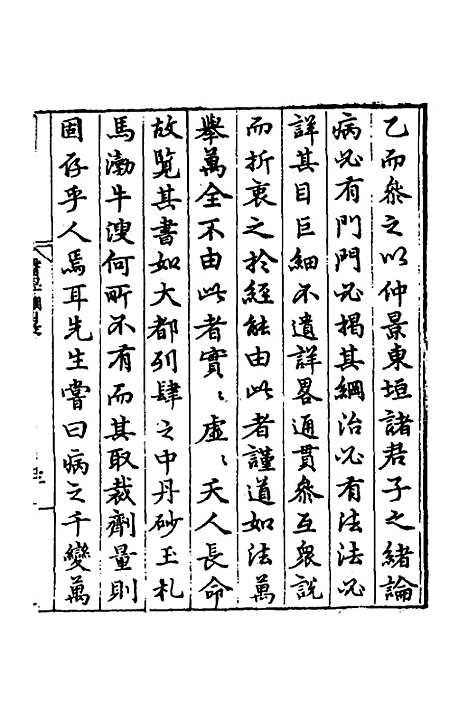 乙而叅之以仲景東垣諸君子之緒論
病必有門門必揭其綱治必有法法必
詳其目巨細不遺詳畧通貫叅互衆說
而折衷之於經能由此者謹道如法萬
舉萬全不由此者實〻虛〻夭人長命
故覽其書如大都列肆之中丹砂玉札
馬渤牛溲何所不有而其取裁劑量則
固存乎人焉耳先生嘗曰病之千變萬